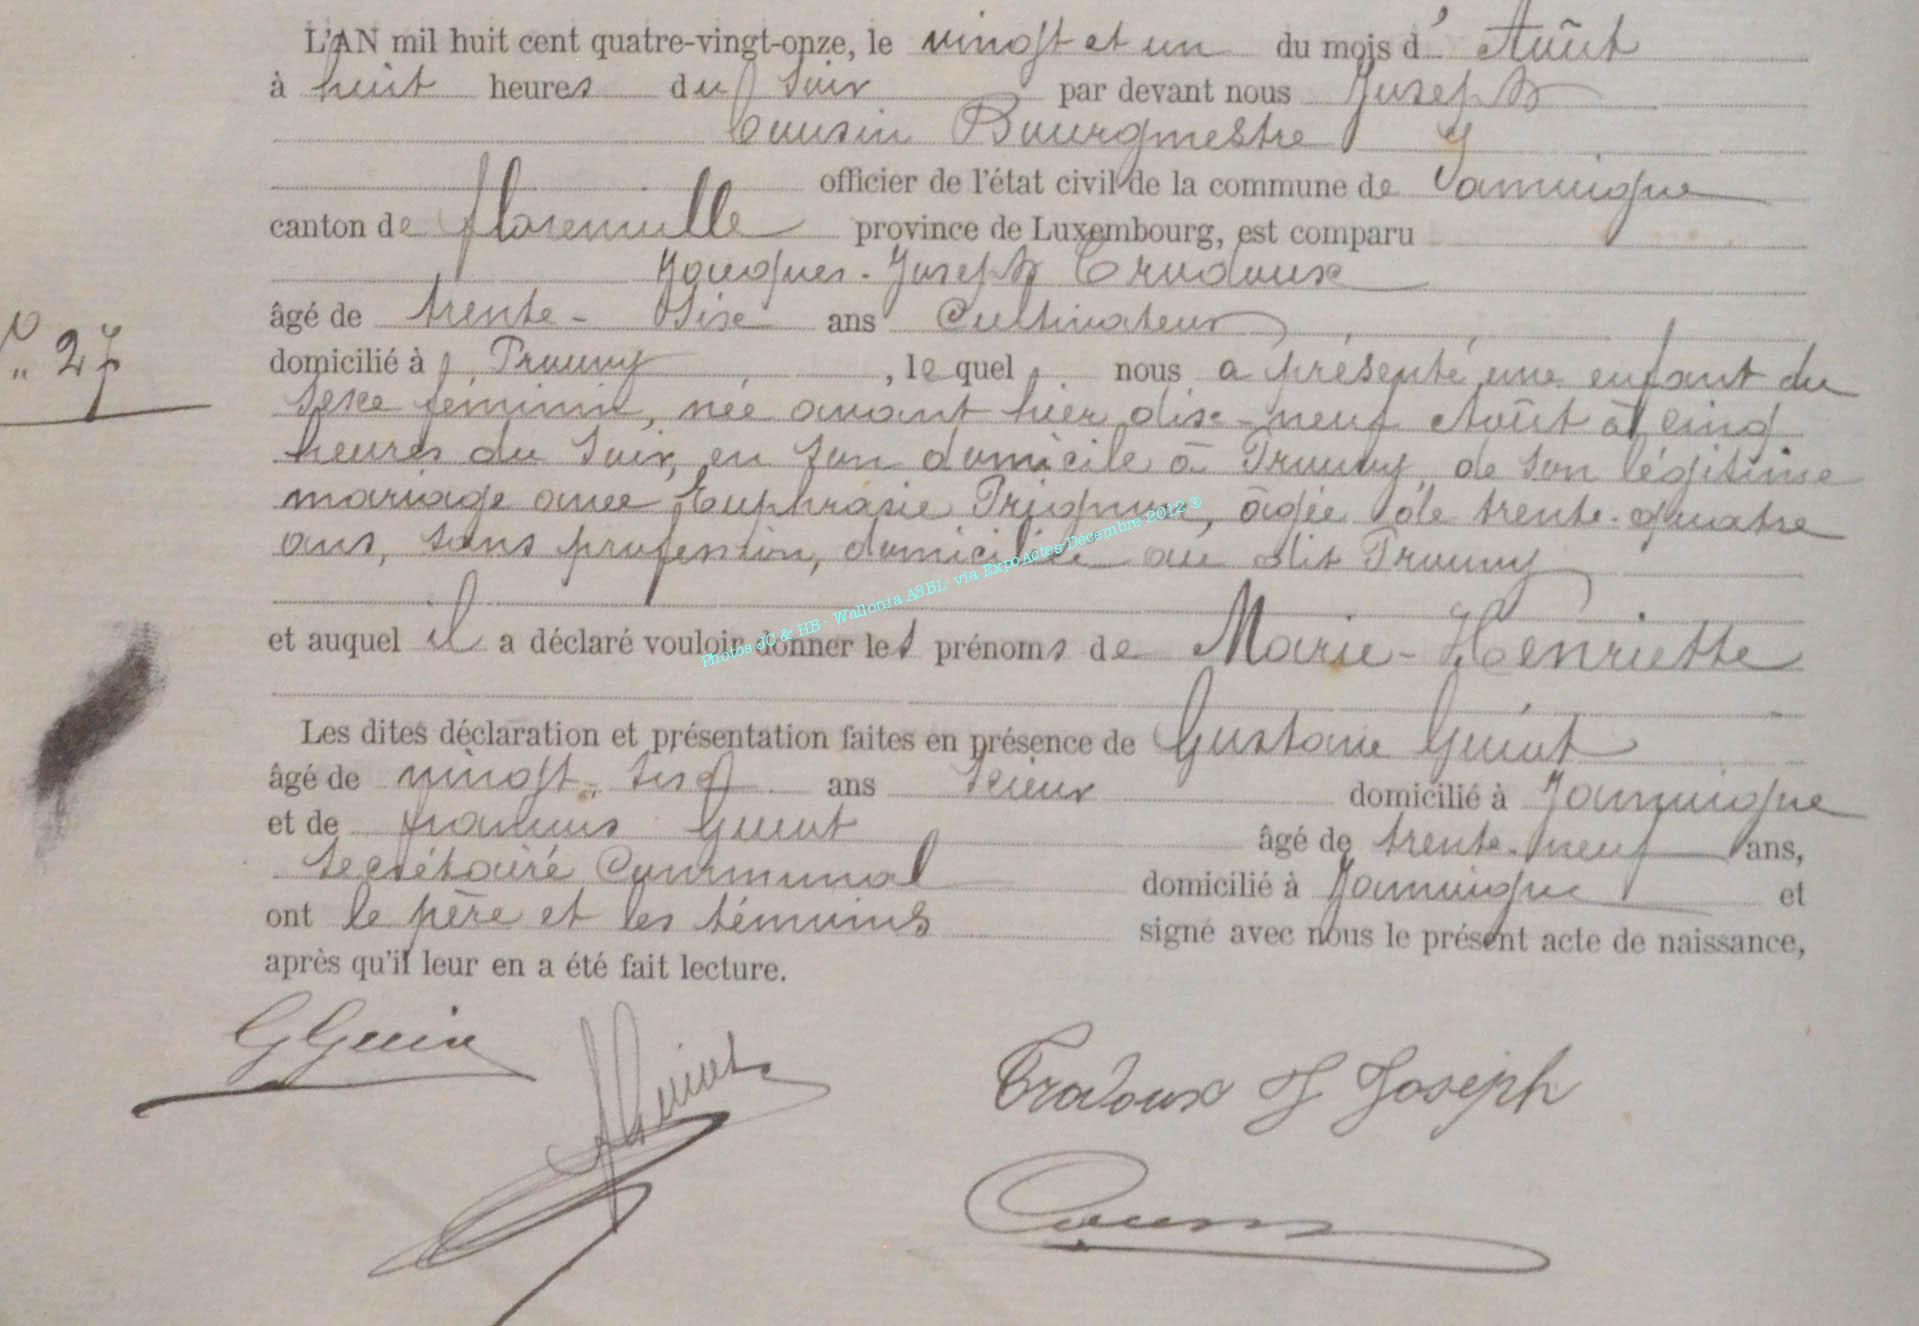 L'AN mil huit cent quatre-vingt-onze, le vingt et un du mois d' Août
à huit heures du soir par devant nous Joseph
Cousin Bourgmestre
officier de l'état civil de la commune de Jamoigne
canton de florenville province de Luxembourg, est comparu
Jacques-Joseph
âgé de trente-six ans Cultivateur
N° 27
domicilié à Prouvy, le quel nous a présenté une enfant du
sexe féminin, née avant hier dix-neuf Août à cinq
heures du soir, en son domicile à Prouvy, de son légitime
mariage avec Euphrasie âgée de trente-quatre
ans, sans profession, domiciliée au dit Prouvy
Photos JC & HB - Wallonia ASBL via ExpoActes Décembre 2012 ®
et auquel il a déclaré vouloir donner les prénoms de Marie-Henriette
Les dites déclaration et présentation faites en présence de Gustave Guiot
âgé de vingt-sept ans scieur domicilié à Jamoigne
et de françois Guiot âgé de trente-neuf ans,
secrétaire Communal domicilié à Jamoigne et
ont le père et les témoins signé avec nous le présent acte de naissance,
après qu'il leur en a été fait lecture.
G Guiot
Guiot
J Joseph
Cousin